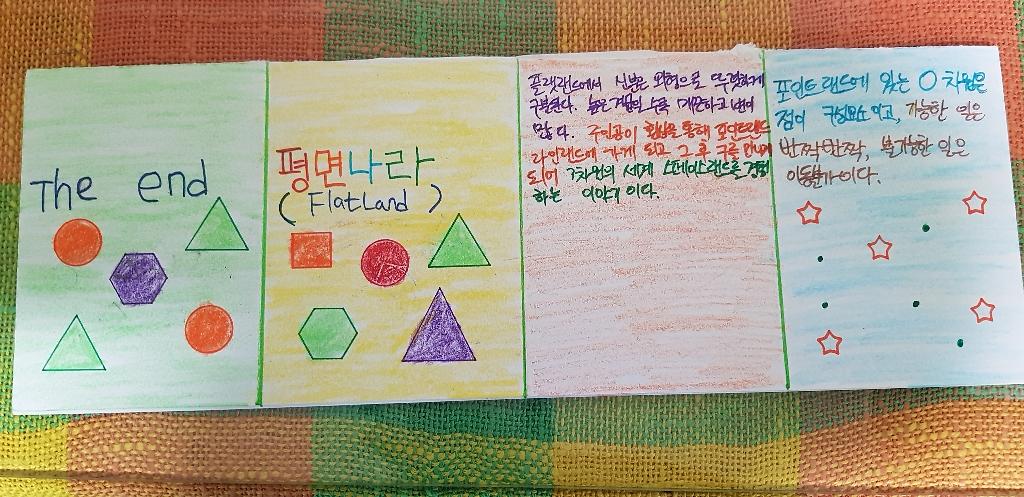 The end
평면나라
( Flatland )
플랫랜드에서 신분은 외형으로 뚜렷하게
구분된다. 높은 계급일 수록 매끈하고 변이
많다. 주인공이 환상을 통해 포인트랜드
라인랜드에 가게 되고 그 후 구를 만나게
되어 3차원의 세계 스페이스랜드를 경험
하는 이야기 이다.
포인트 랜드에 있는 0 차원은
점이 구성요소 이고, 가능한 일은
반짝반짝, 불가능한 일은
이동불가 이다.